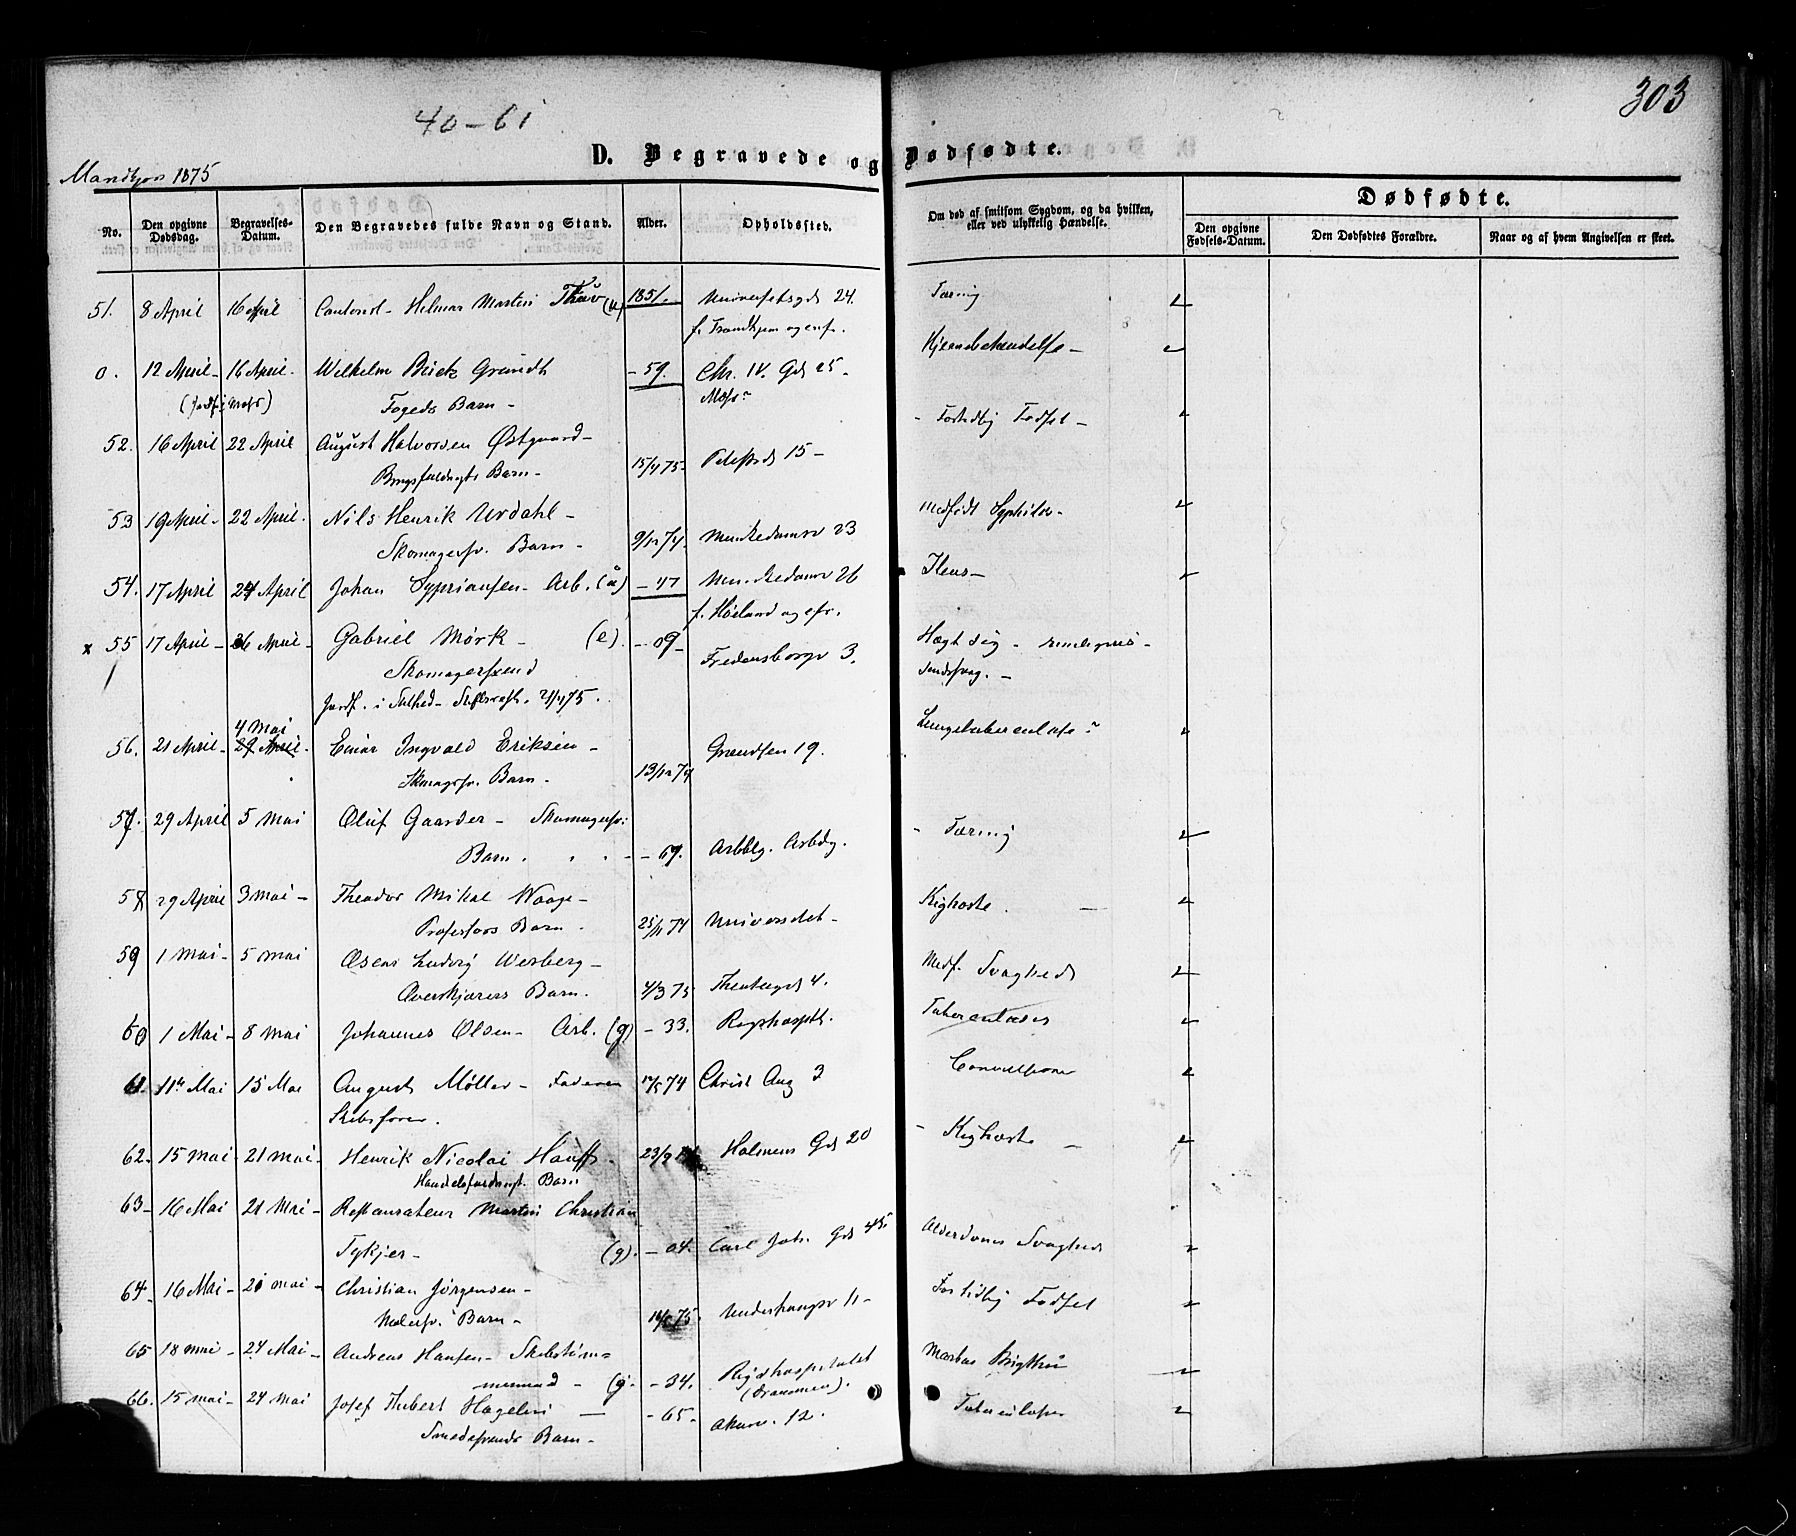 303
40-61
D. Begravede og Dødfødte.
Mandkjøn 1875
No. Den opgivne Dødsdag. Begravelses-Datum. Den Begravedes fulde Navn og Stand. Alder. Opholdssted. Om død af smitsom Sygdom, og da hvilken, eller ved ulykkelig Hændelse. Dødfødte.
Den opgivne Fødsels-Datum. Den Dødfødtes Forældre. Naar og af hvem Angivelsen er skeet.
51. 8 April 16 April Helmar Martin (u) 1851. Universitetsgd 24. Tæring
f. Trondhjem og
0. 12 April - 16 April - Wilhelm Grundt - 59. Chr. IV. Gd 25 -
Fogeds Barn -
52. 16 April 22 April August Halvorsen Østgaard - 15/4 75 - 15 - For tidlig Fødsel -
Barn -
53 19 April - 22 April. Nils Henrik Urdahl - 9/12 74. Munkedamsv 23 medfødt Syphilis -
Skomagersv. Barn -
54. 17 April 24 April Johan Sypriansen - Arb. - 47 Munkedamsv 26 Ileus -
f. Høland og
x 55 17 April - 26 April - Gabriel Mørk - (e). - 09 - Fredensborgv 3.
Skomagersvend
Jordf. i 21/4 75.
4 Mai
56. 21 April - 29 April. Einar Ingvald Eriksen - 13/12 74 Grændsen 19.
Barn -
57. 29 April 5 Mai Oluf Gaarder - Skomagersv: - 69. Tæring
Barn.
58 29 April 3 Mai - Theodor Mikal Waage - 25/11 74 Universitet - Kighoste.
Professors Barn.
59 1 Mai - 5 Mai Oscar Ludvig Werberg - 4/3 75 Theatergd 4. Medf. Svaghed
Overskjærers Barn.
60 1 Mai - 8 Mai Johannes Olsen - Arb. (g) - 33. Righospth. Tuberculoses
61. 11te Mai 15 Mai August Møller - Faderen 74 Christ Aug 3 Convulsioner
Skibsfører.
62. 15 Mai 21 Mai. Henrik Nicolai Hauff. Holmens Gd 20 - Kighoste -
Barn
63 - 16 Mai 21 Mai - Restaurateur Martin Christian
Tykjer - (g). - 04. Carl Joh. Gd 45 Alderdoms Svaghed
64. 16 Mai - 20 Mai - Christian Jørgensen - Underhaugsv 11 - For tidlig Fødsel
Malersv. Barn -
65 18 Mai - 24 Mai - Andreas Hansen - Skibstøm= - 34. Rigshospitalet Morbus Brigthii
mermand - (g. (Drammen).
66. 15 Mai - 24 Mai Josef Hubert Hagelin - 65. Akersv. 12. Tuberculoses
Smedesvends Barn -